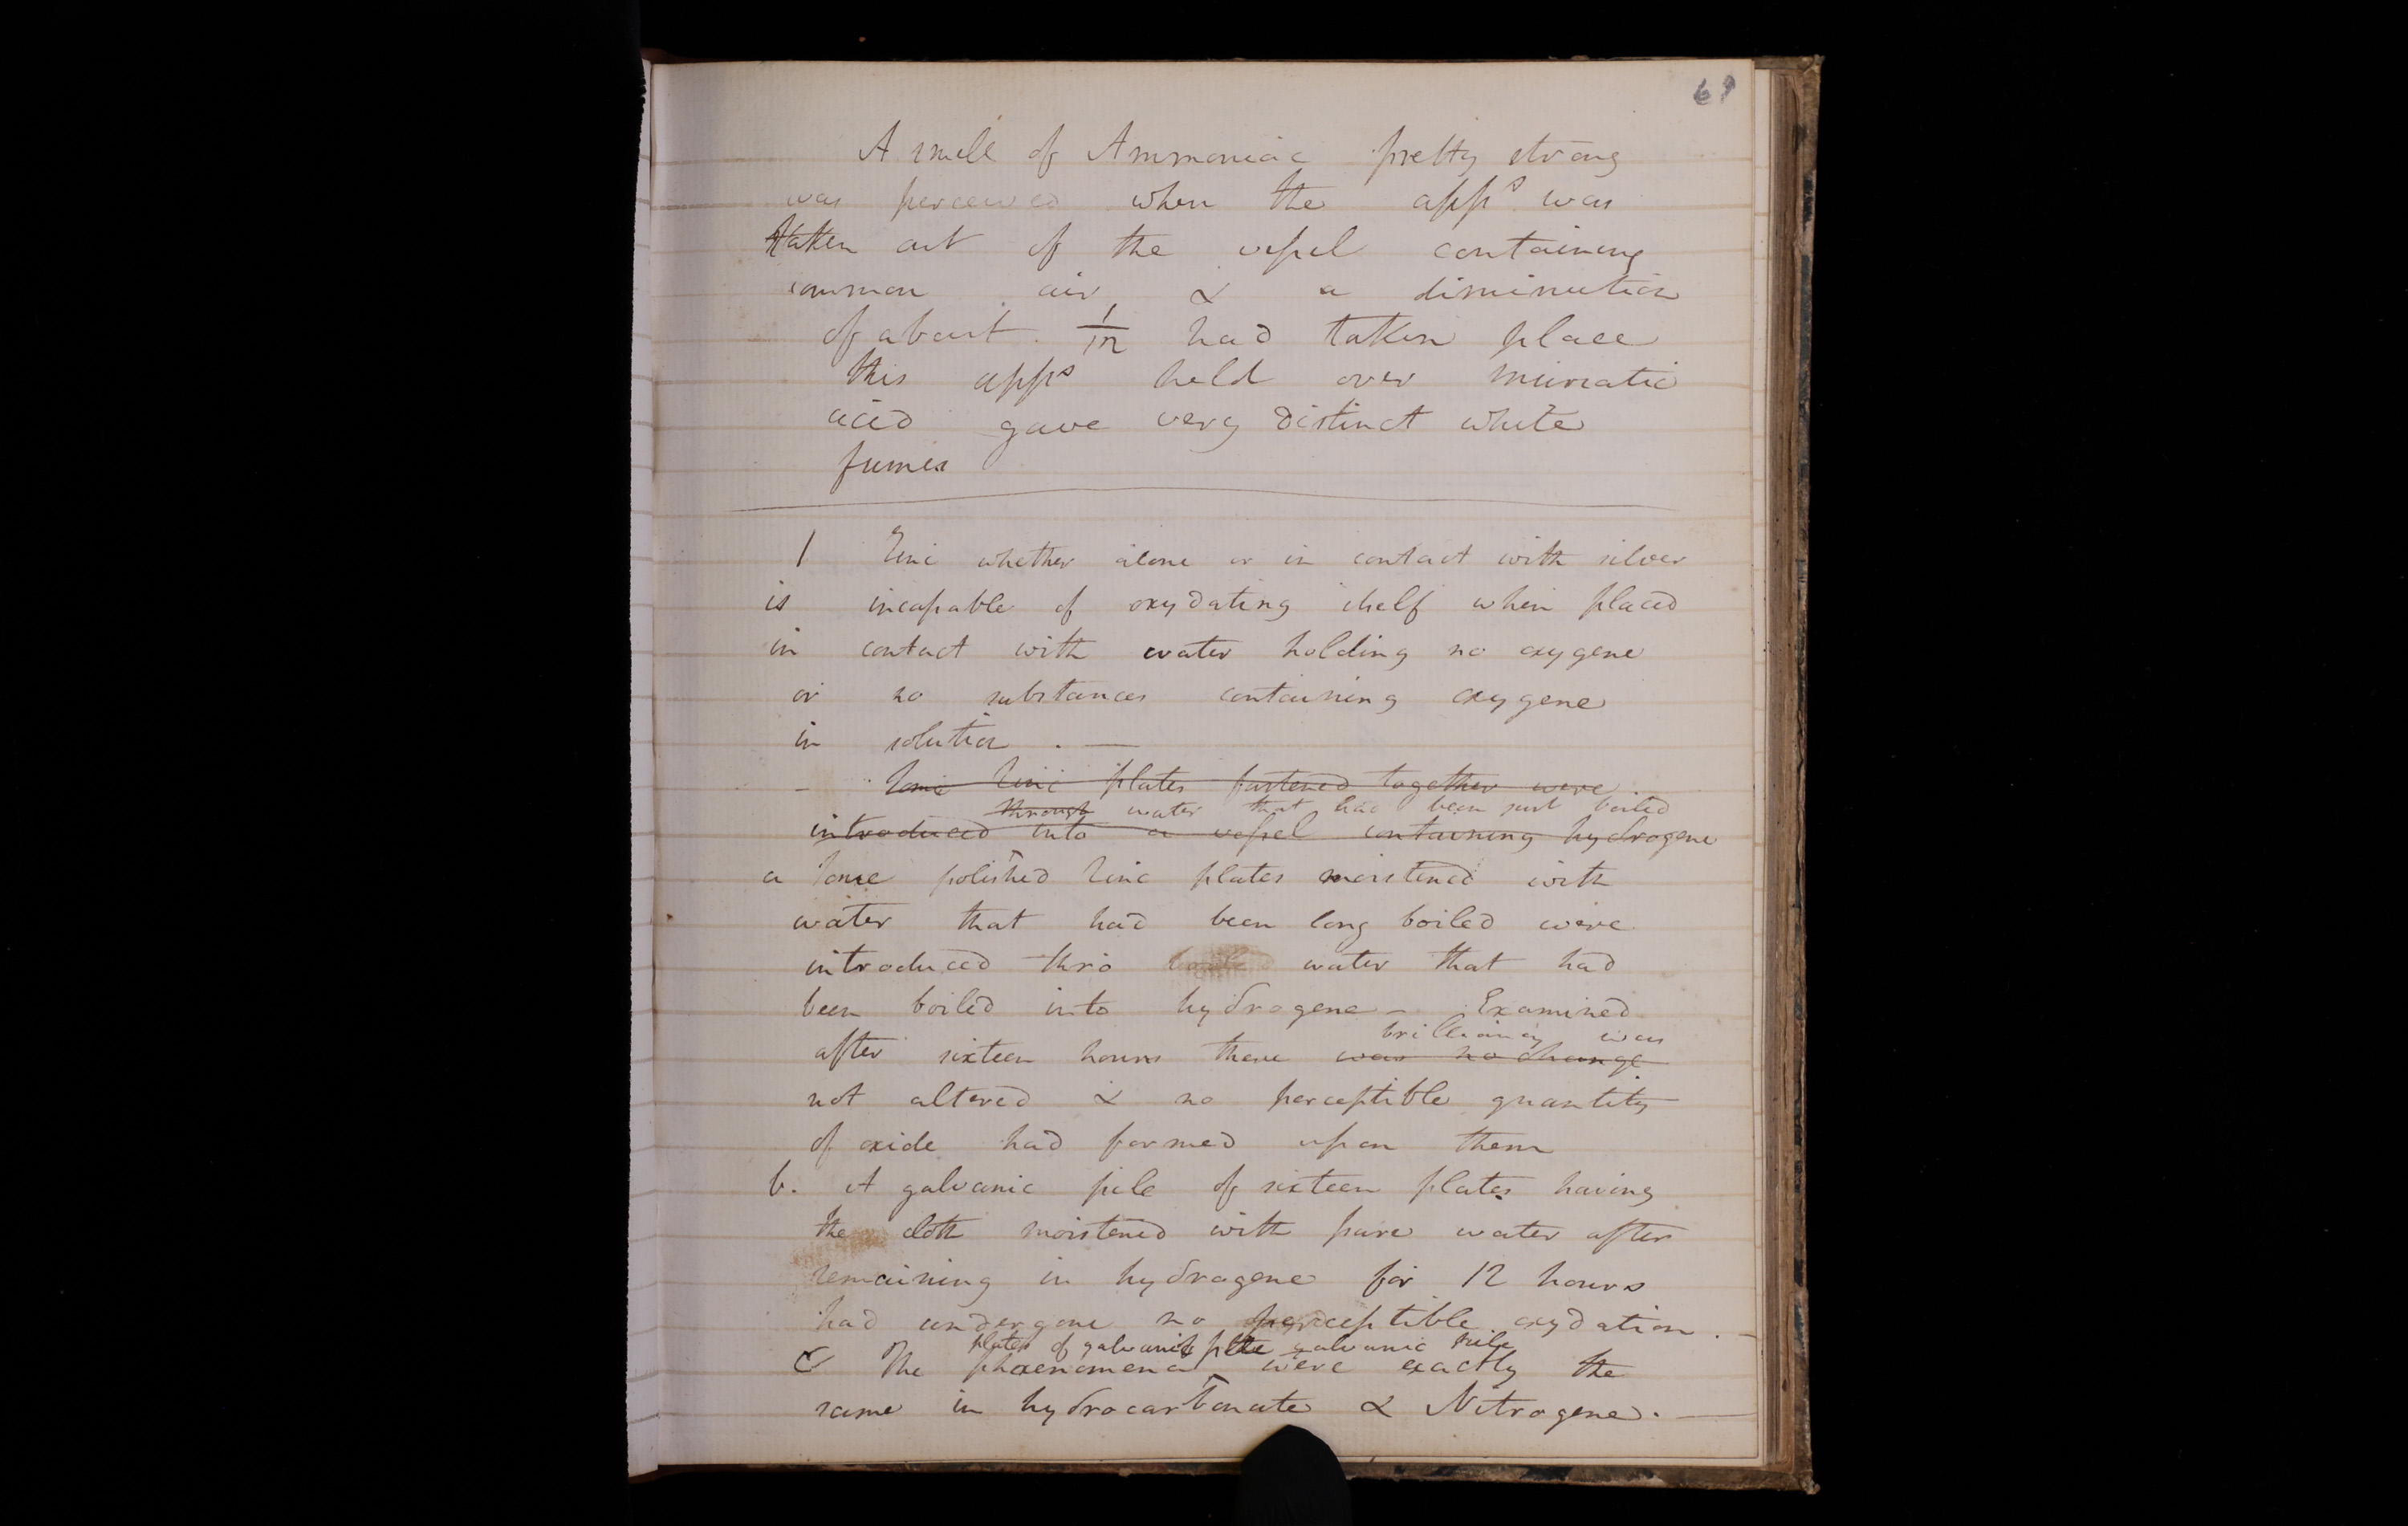 69
A smell of Ammoniac pretty strong
was perceived when the apps was
taken out of the vessel containing
common air & a diminution
of about 1/12 had taken place
this apps held over muriatic
acid gave very distinct white
fumes
1 Zinc whether alone or in contact with silver
is incapable of oxydating itself when placed
in contact with water holding no oxygene
or no substances containing oxygene
in solution . —
- Some Zinc plates fastened together were
through water that had been just boiled
introduced into a vessel containing hydrogene
a Some polished Zinc plates moistened with
water that had been long boiled were
introduced thro water that had
been boiled into hydrogene - Examined
brilliancy was
after sixteen hours there was no change
not altered & no perceptible quantity
of oxide had formed upon them
b. A galvanic pile of sixteen plates having
the cloth moistened with pure water after
remaining in hydrogene for 12 hours
had undergone no perceptible oxydation . -
plates of galvanic pile galvanic pile
C The phaenomena were exactly the
same in hydrocarbonate & Nitrogene. —